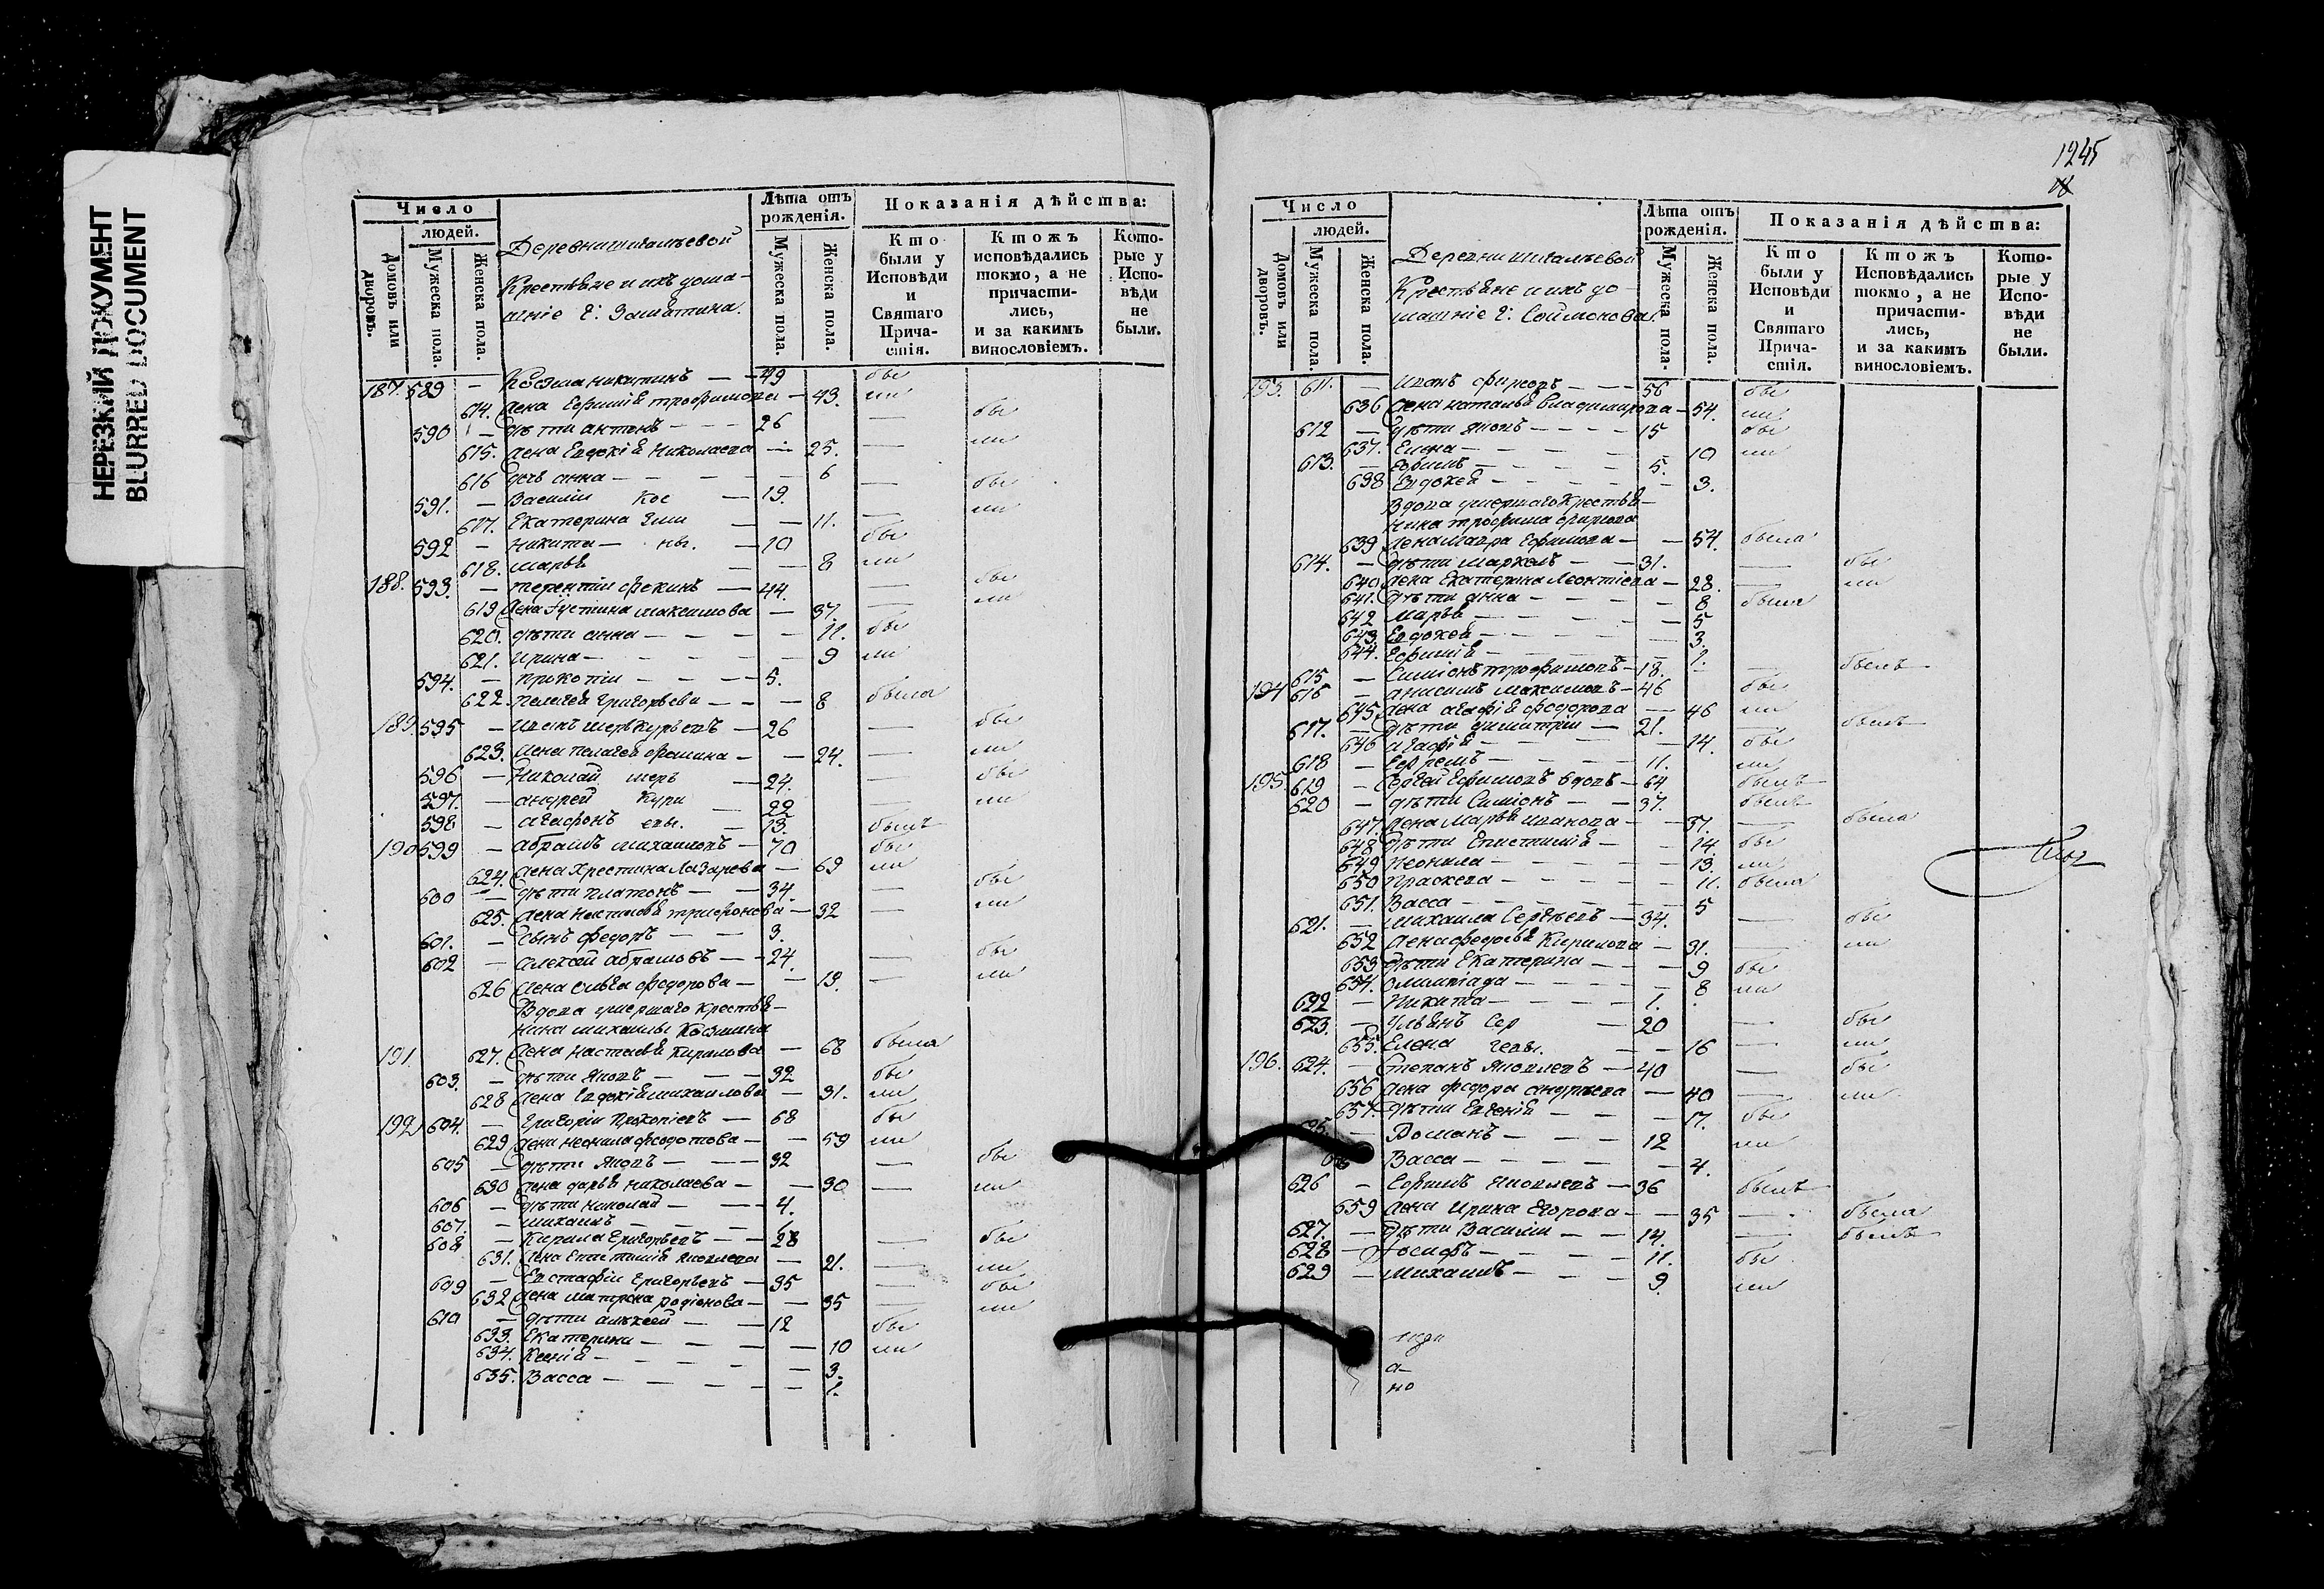 НЕРЕЗКИЙ ДОКУМЕНТ
BLURRED DOCUMENT
Число
людей.
Домовъ или дворовъ.
Мужеска пола.
Женска пола.
Деревни
Крестьяне и ихъ дома-
шніе Г:
Лѣта отъ рожденія.
Мужеска пола.
Женска пола.
Показанія дѣйства:
Кто были у Исповѣди и Святаго Причастія.
Ктожъ исповѣдались токмо, а не причастились, и за какимъ винословіемъ.
Которые у Исповѣди не были.
187. 589 — Козма Никитинъ — 49 бы
614. жена Ефимія Трофимова — 43. ли
590 — дѣти Антонъ — 26 — бы
615. жена Евдокія Николаева — 25. — ли
616 дочь Анна — 6
591. — Василий Кос — 19. — бы
617. Екатерина — 11. — ли
592 — Никита — ны. — 10 бы
618. Марья — 8 ли
188. 593. — Терентій — 44. — бы
619 жена Устина Максимова — 37. — ли
620. дѣти Анна — 11. бы
621. Ирина — 9 ли
594. — Прокопій — 5.
622. Пелагея Григорьева — 8 была
189. 595 — 26 — бы
623. жена Пелагея Фомина — 24. — ли
596 — Николай мерь — 24. — бы
597. — Андрей кури — 22 — ли
598 — Агафонъ евы. — 13. былъ
190 599 — Абрамъ Михаиловъ — 70 бы
624. жена Христина Лазарева — 69 ли
600 — дѣти Платонъ — 34. — бы
625. жена Трифонова — 32 — ли
601. — сынъ Федоръ — 3.
602 — Алексѣй Абрамовъ — 24. — бы
626 жена Ольга Федорова — 19. — ли
Вдова умершаго крестья-
нина Михаилы Козмина
191. 627. жена Настасья Кирилова — 68 была
603. — дѣти Яковъ — 32 бы
628 жена Евдокія Михаилова — 31. ли
192 604. — Григорій Прокопіевъ — 68 бы
629 жена Неонила Федотова — 59 ли
605 — дѣти Яковъ — 32 — бы
630 жена Дарья Николаева — 30 — ли
606 — дѣти Николай — 4.
607. — Михаилъ — 1.
608 — Кирила Григорьевъ — 28 — бы
631. жена Епистимія Яковлева — 21. — ли
609 — Евстафій Григорьевъ — 35 — бы
632 жена Матрена Родіонова — 35 — ли
610 — дѣти Алексѣй — 12 бы
633. Екатерина — 10 ли
634. Ксенія — 3.
635. Васса — 1.
1245
Число
людей.
Домовъ или дворовъ.
Мужеска пола
Женска пола.
Деревни
Крестьяне и ихъ до-
машніе Г: Соймонова.
Лѣта отъ рожденія.
Мужеска пола.
Женска пола.
Показанія дѣйства:
Кто были у Исповѣди и Святаго Причастія.
Ктожъ Исповѣдались токмо, а не причастились, и за какимъ винословіемъ.
Которые у Исповѣди не были.
193. 611. — 56 бы
636 жена Наталья Владимирова — 54. ли
612 — дѣти Яковъ — 15 бы
637. Елена — 10 ли
613. — Ефимъ — 5.
638 Евдокея — 3.
Вдова умершаго крестья-
нина Трофима
639 жена Мавра Ефимова — 54. была
614. — дѣти Маркелъ — 31. — бы
640 жена Екатерина Леонтіева — 28. — ли
641. дѣти Анна — 8 была
642 Марья — 5
643. Евдокея — 3.
644. Ефимія — 1.
615 — Симіонъ Трофимовъ — 18. — былъ
194 616 — Анисимъ Максимовъ — 46 бы
645 жена Агафія Федорова — 46 ли
617. — дѣти Димитрій — 21. — былъ
646 Агафія — 14. бы
618 — Ефремъ — 11. ли
195. 619 — Сергей Ефимовъ вдовъ — 64 былъ
620 — дѣти Симіонъ — 37. былъ
647. жена Марья Иванова — 37. — была
648 дѣти Епистимія — 14. бы
649 Неонила — 13. ли
650 Праскева — 11. была
651. Васса — 5
621. — Михаила Сергѣевъ — 34. — бы
652 жена Федосья Кирилова — 31. — ли
653 дѣти Екатерина — 9 бы
654. Олимпіада — 8 ли
622 — Никита — 1.
623. — Ульянъ Сер — 20 — бы
655. Елена геевы. — 16 — ли
196. 624. — Степанъ Яковлевъ — 40 — бы
656 жена Федора Андреева — 40 — ли
657. дѣти Евгенія — 17. бы
— Романъ — 12 ли
Васса — 4.
626 — Ефимъ Яковлевъ — 36 былъ
659 жена Ирина Егорова — 35 — была
627. — дѣти Василій — 14. — былъ
628 — Іосифъ — 11. бы
629 — Михаилъ — 9 ли
а-
но